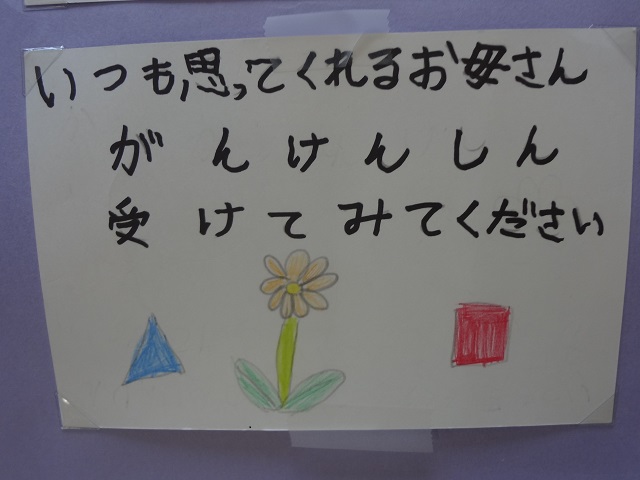 いつも思ってくれるお母さん
がんけんしん
受けてみてください